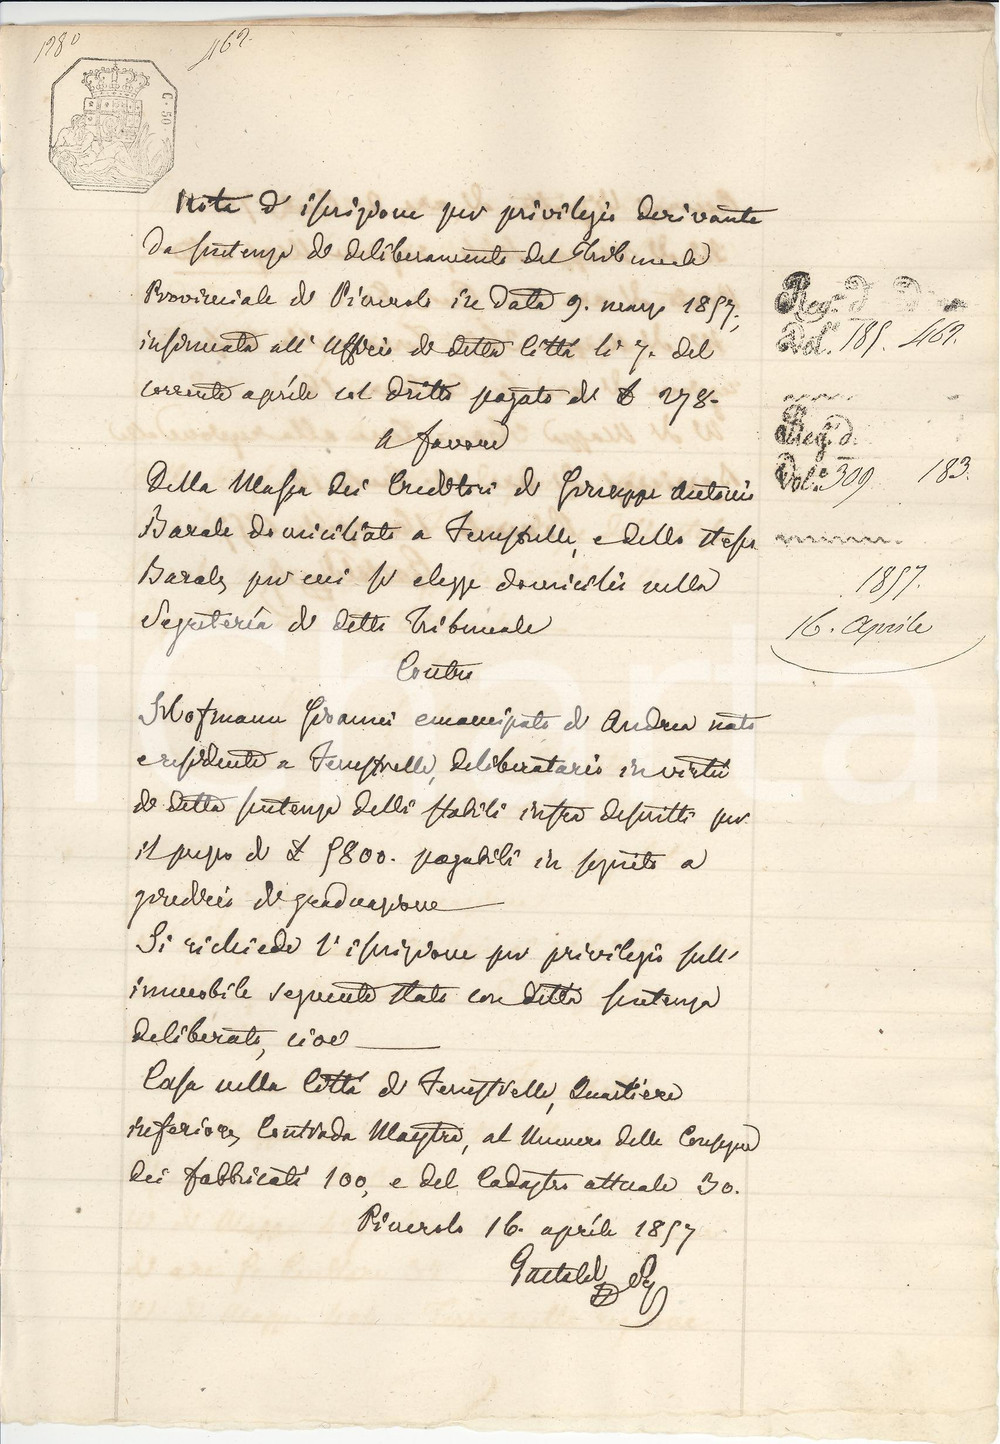 1280
462.
C. 50
Nota d'iscrizione per privilegio derivante
da sentenza di deliberamento del Tribunale
Provinciale di Pinerolo in data 9. marzo 1857,
insinuata all'Uffizio di detta Città li 7. del
corrente aprile col dritto pagato di £ 278.
A favore
Della Massa dei Creditori di Giuseppe Antonio
Barale domiciliato a Fenestrelle, e dello stesso
Barale, per cui si elegge domicilio nella
Segreteria di detto Tribunale
Contro
Giovanni emancipato di Andrea nato
e residente a Fenestrelle, deliberatario in virtù
di detta sentenza delli stabili infra descritti per
il prezzo di £ 5800. pagabili in seguito a
giudicio di graduazione
Si richiede l'iscrizione per privilegio sull'
immobile seguente stato con detta sentenza
deliberato, cioè
Casa nella Città di Fenestrelle, Quartiere
inferiore, Contrada Maestra, al Numero delle Consegne
dei fabbricati 100, e del Cadastro attuale 30.
Pinerolo 16. aprile 1857
Reg.° d'
Vol. 185. 462.
Reg.° d.
Vol.e 309 183.
1857.
16. Aprile